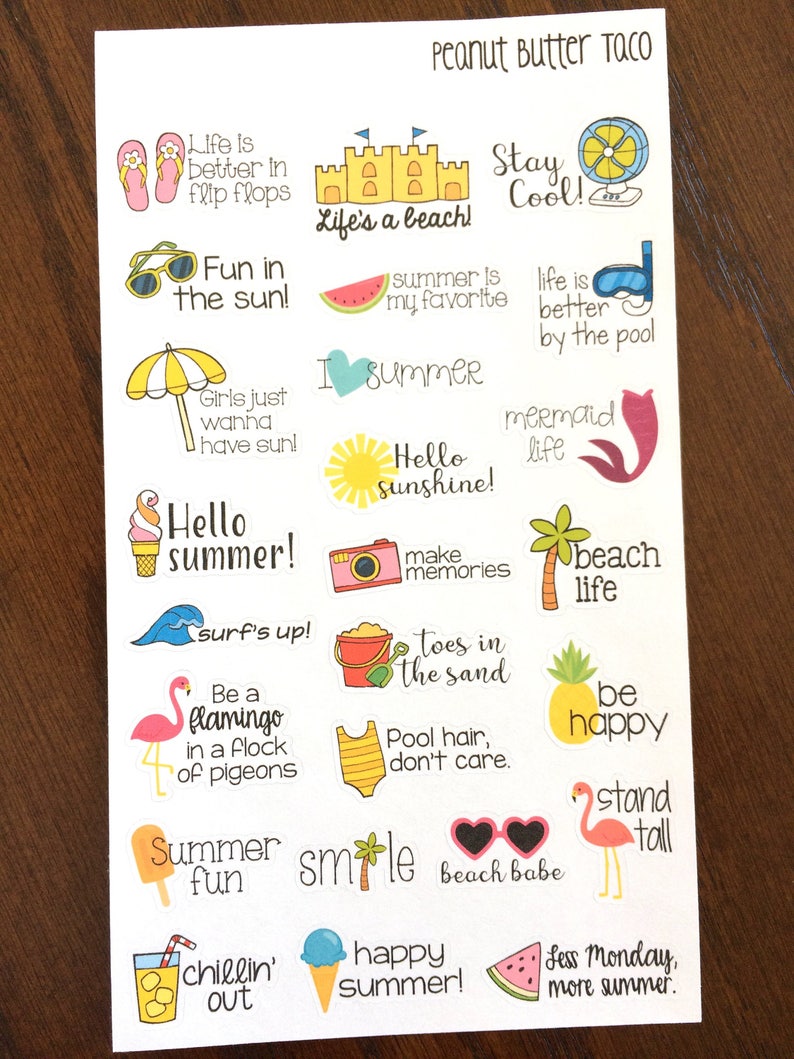 Peanut Butter Taco
Life is
better in
flip flops
Life's a beach!
Stay
Cool!
Fun in
the sun!
summer is
my favorite
life is
better
by the pool
Girls just
wanna
have sun!
I summer
mermaid
life
Hello
sunshine!
Hello
summer!
make
memories
beach
life
surf's up!
toes in
the sand
be
happy
Be a
flamingo
in a flock
of pigeons
Pool hair,
don't care.
stand
tall
Summer
fun
smile
beach babe
chillin'
out
happy
summer!
Less Monday,
more summer.